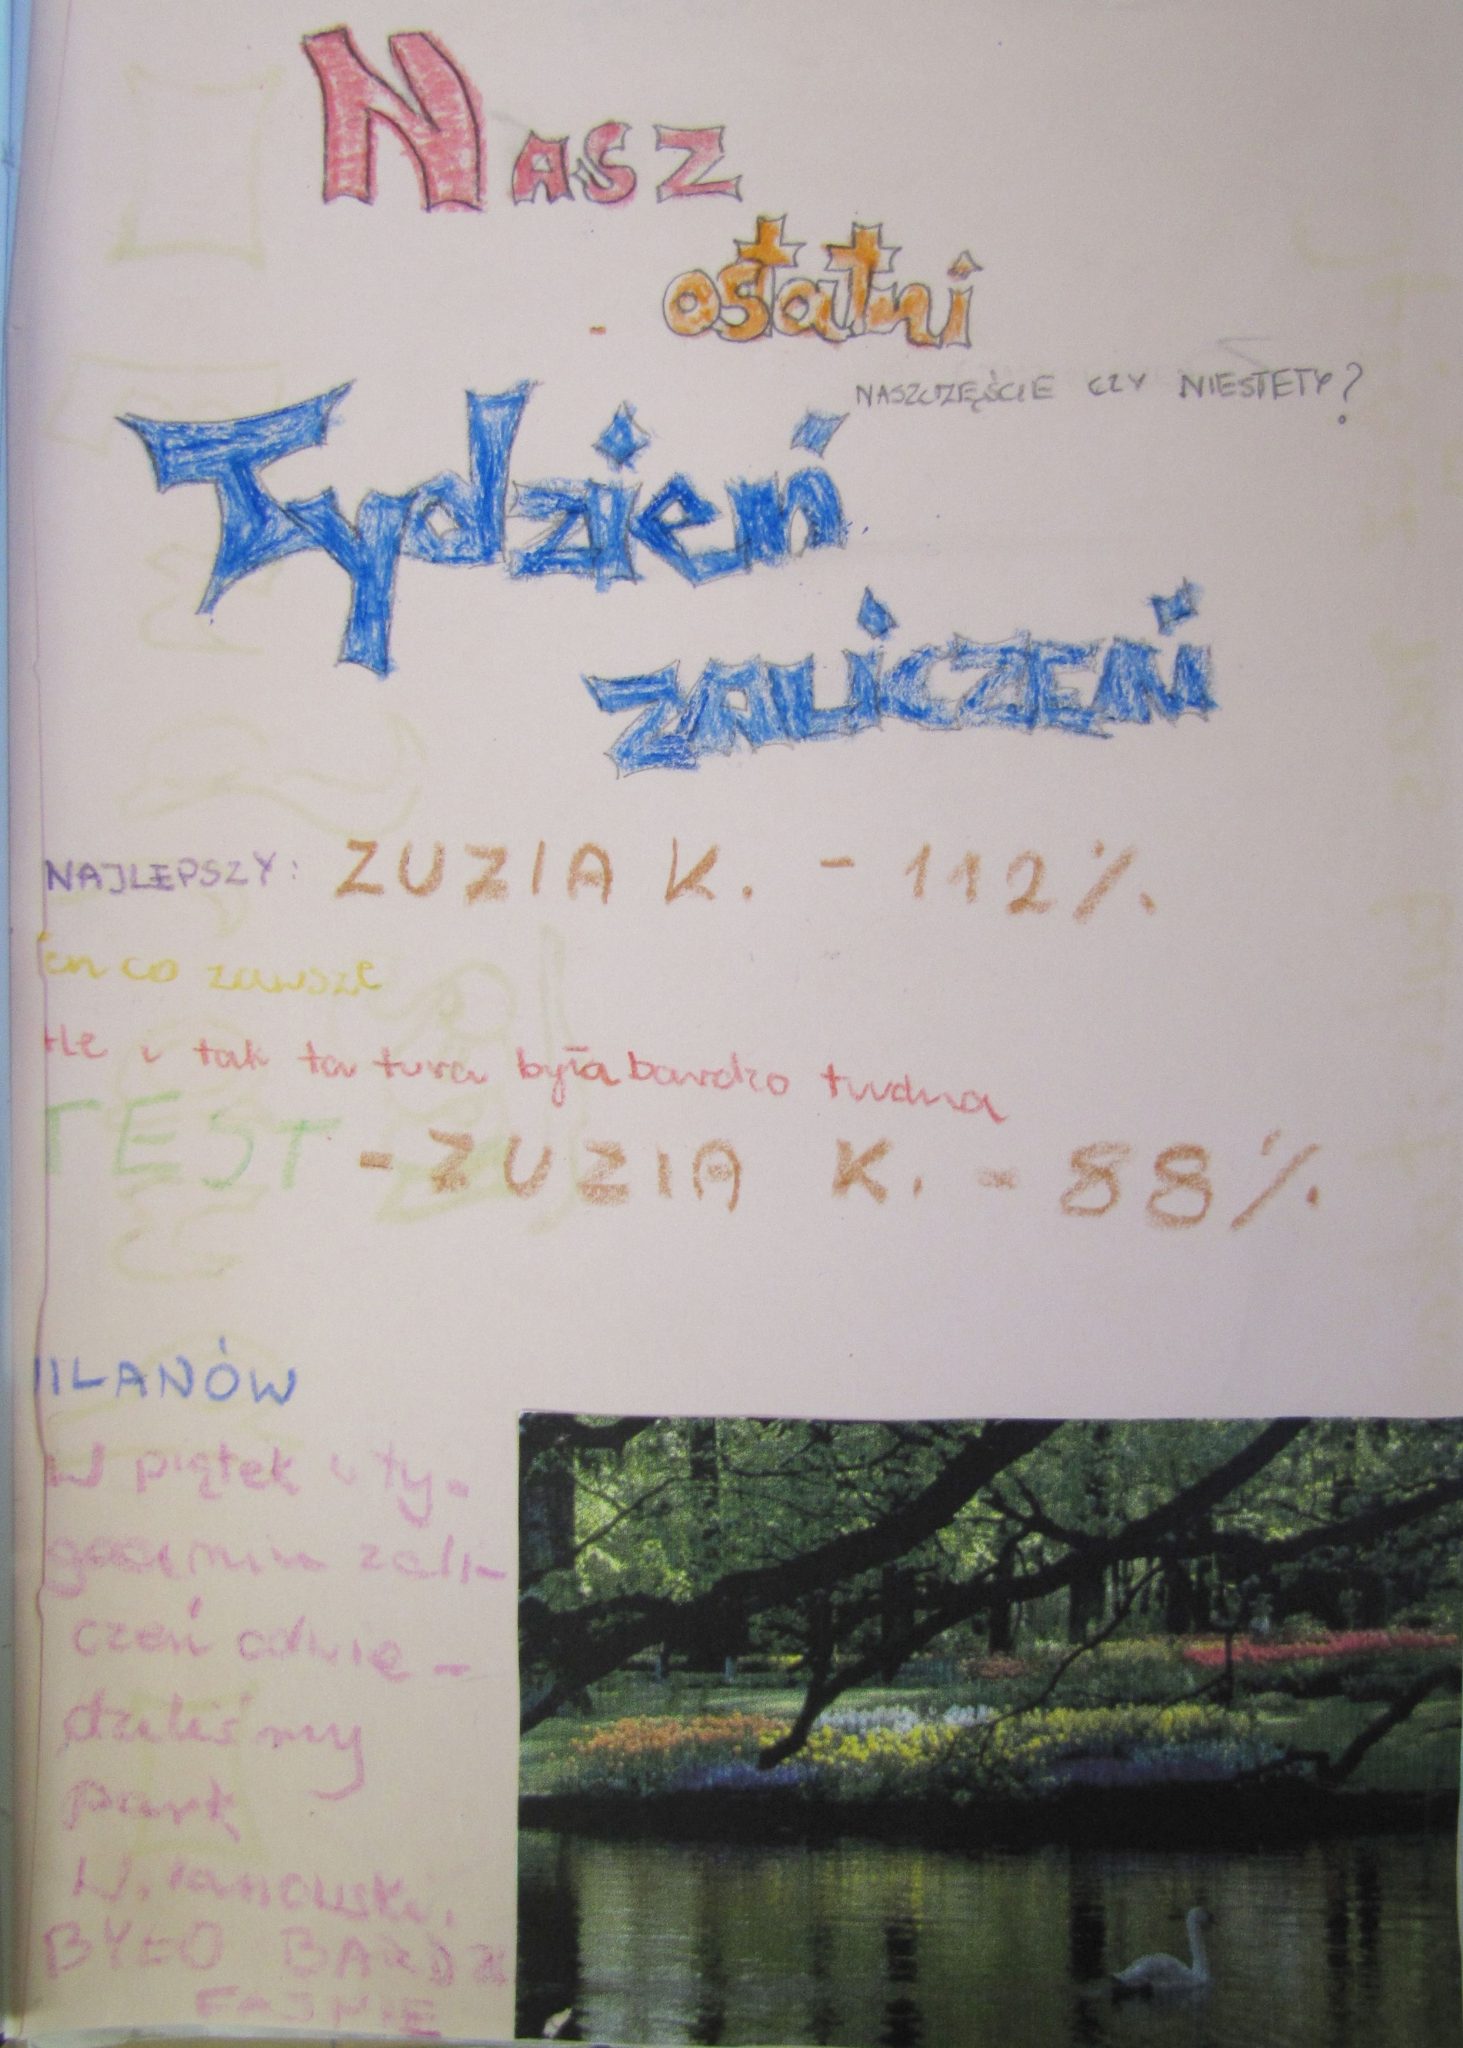 Nasz
ostatni
NASZCZĘŚCIE CZY NIESTETY?
Tydzień
ZALICZEŃ
NAJLEPSZY: ZUZIA K. - 112%
en co zawsze
le i tak ta tura była bardzo trudna
TEST - ZUZIA K. - 88%
ILANÓW
W piątek w ty-
godniu zali-
czeń odwie-
dziliśmy
park
W.lanowski.
BYŁO BARDZ
FAJNIE